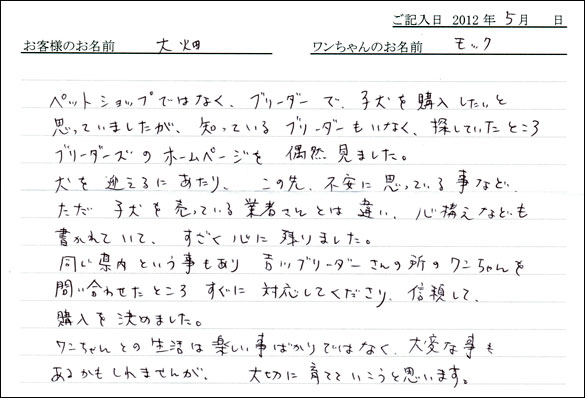 ご記入日 2012年 5月 日
お客様のお名前 大畑 ワンちゃんのお名前 モック
ペットショップではなく、ブリーダーで、子犬を購入したいと
思っていましたが、知っているブリーダーもいなく、探していたところ
ブリーダーズのホームページを 偶然見ました。
犬を迎えるにあたり、この先、不安に思っている事など、
ただ 子犬を売っている業者さんとは違い、心構えなども
書かれていて、すごく心に残りました。
同じ県内という事もあり 吉川ブリーダーさんの所のワンちゃんを
問い合わせたところ すぐに対応してくださり、信頼して、
購入を決めました。
ワンちゃんとの生活は楽しい事ばかりではなく、大変な事も
あるかもしれませんが、 大切に育てていこうと思います。